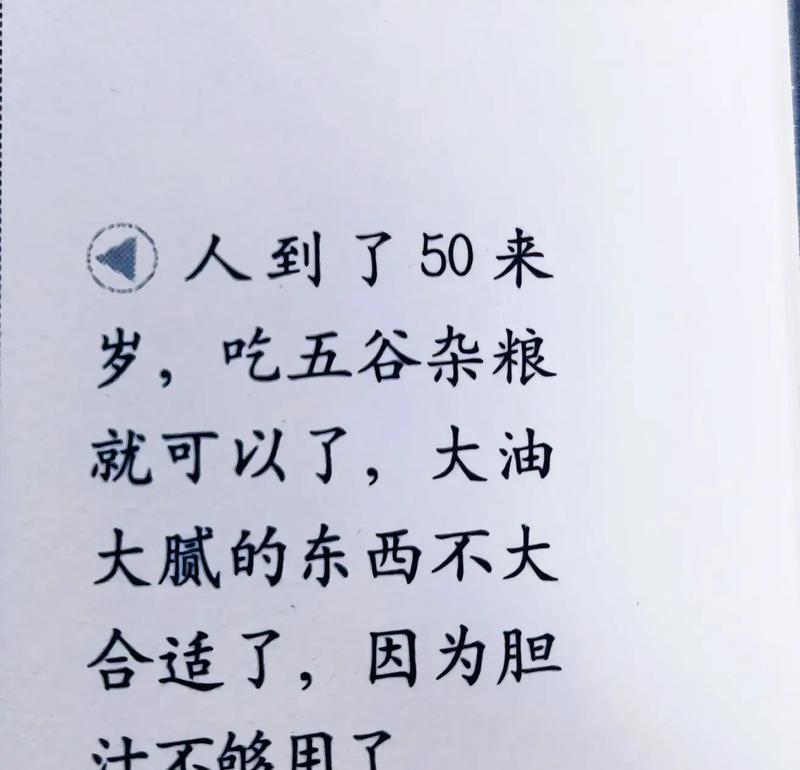 人到了50来
岁，吃五谷杂粮
就可以了，大油
大腻的东西不大
合适了，因为胆
汁不够用了